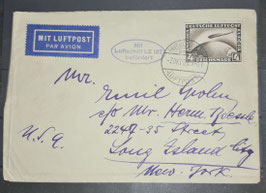 MIT LUFTPOST
PAR AVION
Mit
Luftschiff LZ 127
befördert
DEUTSCHE LUFTPOST
4
4
REICHSMARK
Mr.
Emil
c/o Mr. Herm.
2248-35 Street
Long Island City
New-York.
U.S.A.